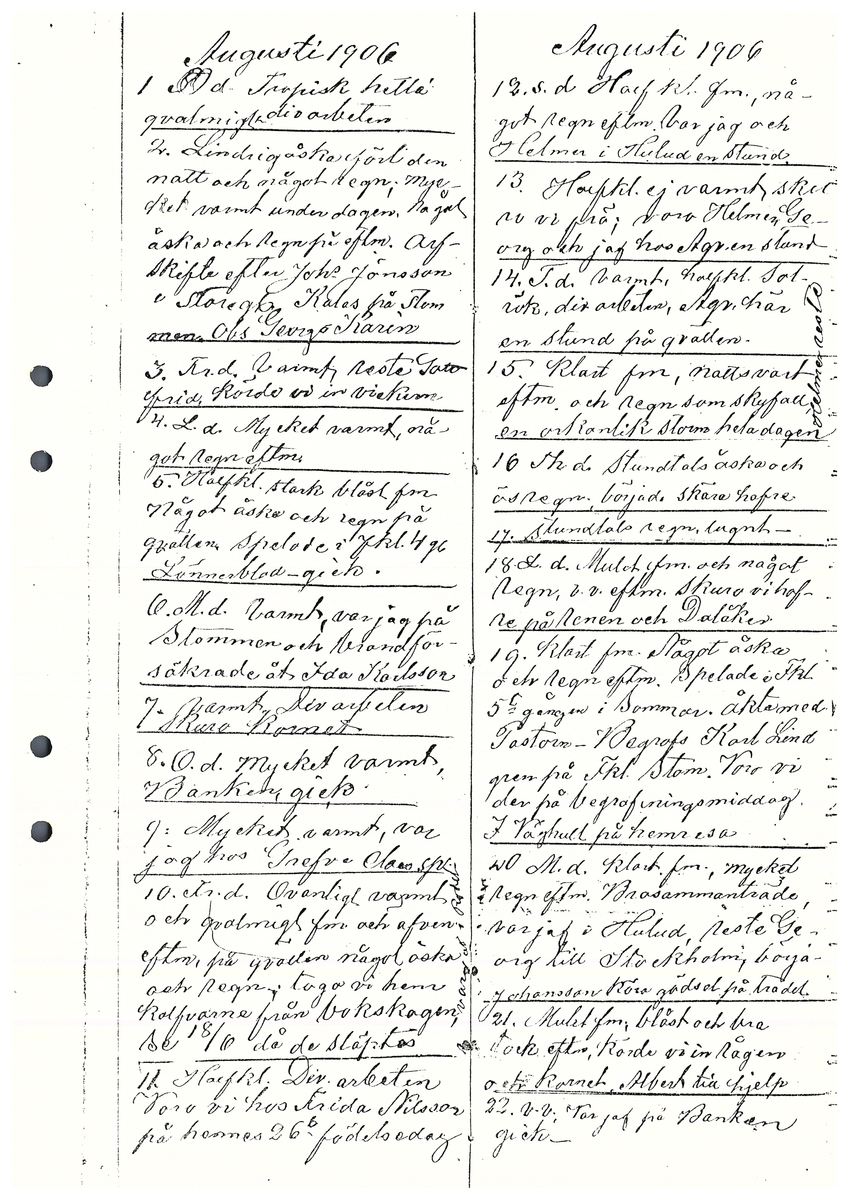 Augusti 1906
1 O d. Tropisk hetta
qvalmigt, div arbeten
2. Lindrig åska förl. den
natt och något regn, Myc-
ket varmt under dagen, något
åska och regn på eftm. Arf-
skifte efter Johs Jönsson
i Storegår. Kalas på Stom
men. Obs Georgs Karin
3. Fr.d. Varmt, reste Got-
frid, körde vi in vickern
4. L. d. Mycket varmt, nå-
got regn eftm.
5. Halfkl. stark blåst fm
något åska och regn på
qvällen. Spelade i Fkl. 4 g.
Lönnerblad gick.
6. M.d. Varmt, var jag på
Stommen och brandför-
säkrade åt Ida Karlsson
7. Varmt, Div arbeten
Skuro Kornet
8. O. d. Mycket varmt,
Banken, gick.
9: Mycket varmt, var
jag hos Grefve Claes Sp.
10. Fr. d. Ovanligt varmt
och qvalmigt fm och afven
eftm, på qvällen något åska
och regn, togo vi hem
Kalfvarne från bokskogen,
se 18/6 då de släptes
11. Halfkl. Div. arbeten
Voro vi hos Frida Nilsson
på hennes 26 födelsedag
Augusti 1906
12. S. d Half kl. fm., nå-
got regn eftm. Var jag och
Helmer i Hulud en stund
13. Halfkl. ej varmt, sket
ro vi frö; voro Helmer, Ge-
org och jag hos Agr. en stund
14. T. d. varmt, halfkl. Sol-
rök, div arbeten, Agr. här
en stund på qvällen.
15. Klart fm, nattsvart
eftm. och regn som skyfall
en orkanlik storm hela dagen
Helmer reste
16 Th d. Stundtals åska och
ösregn, började skära hafre
17. Stundtals regn, lugnt —
18. L. d. Mulet fm. och något
regn, v. v. eftm. Skuro vi haf-
re på Renen och Dalåker
19. Klart fm. Något åska
och regn eftm. Spelade i Fkl.
5te gången i Sommar. Åkte med
Pastorn — Begrofs Karl Lind
gren på Fkl. Stom. Voro vi
der på begrafningsmiddag.
I Väghult på hemresa
20 M. d. Klart fm., mycket
regn eftm. Brosammanträde,
var jag i Hulud, reste Ge-
org till Stockholm, börja-
Johansson Köra gödsel på trädet
21. Mulet fm, blåst och bra
tork eftm, Körde vi in Rågen
och Kornet, Albert tia hjelp
22. v. v; Var jag på Banken
gick —